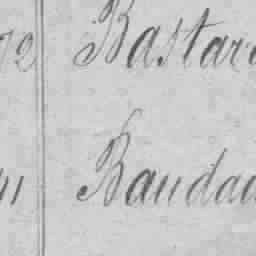 72 Bastar
41 Baudad